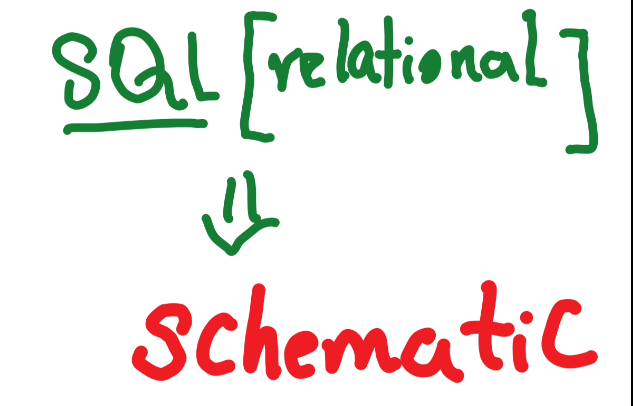 SQL [relational]
schematic